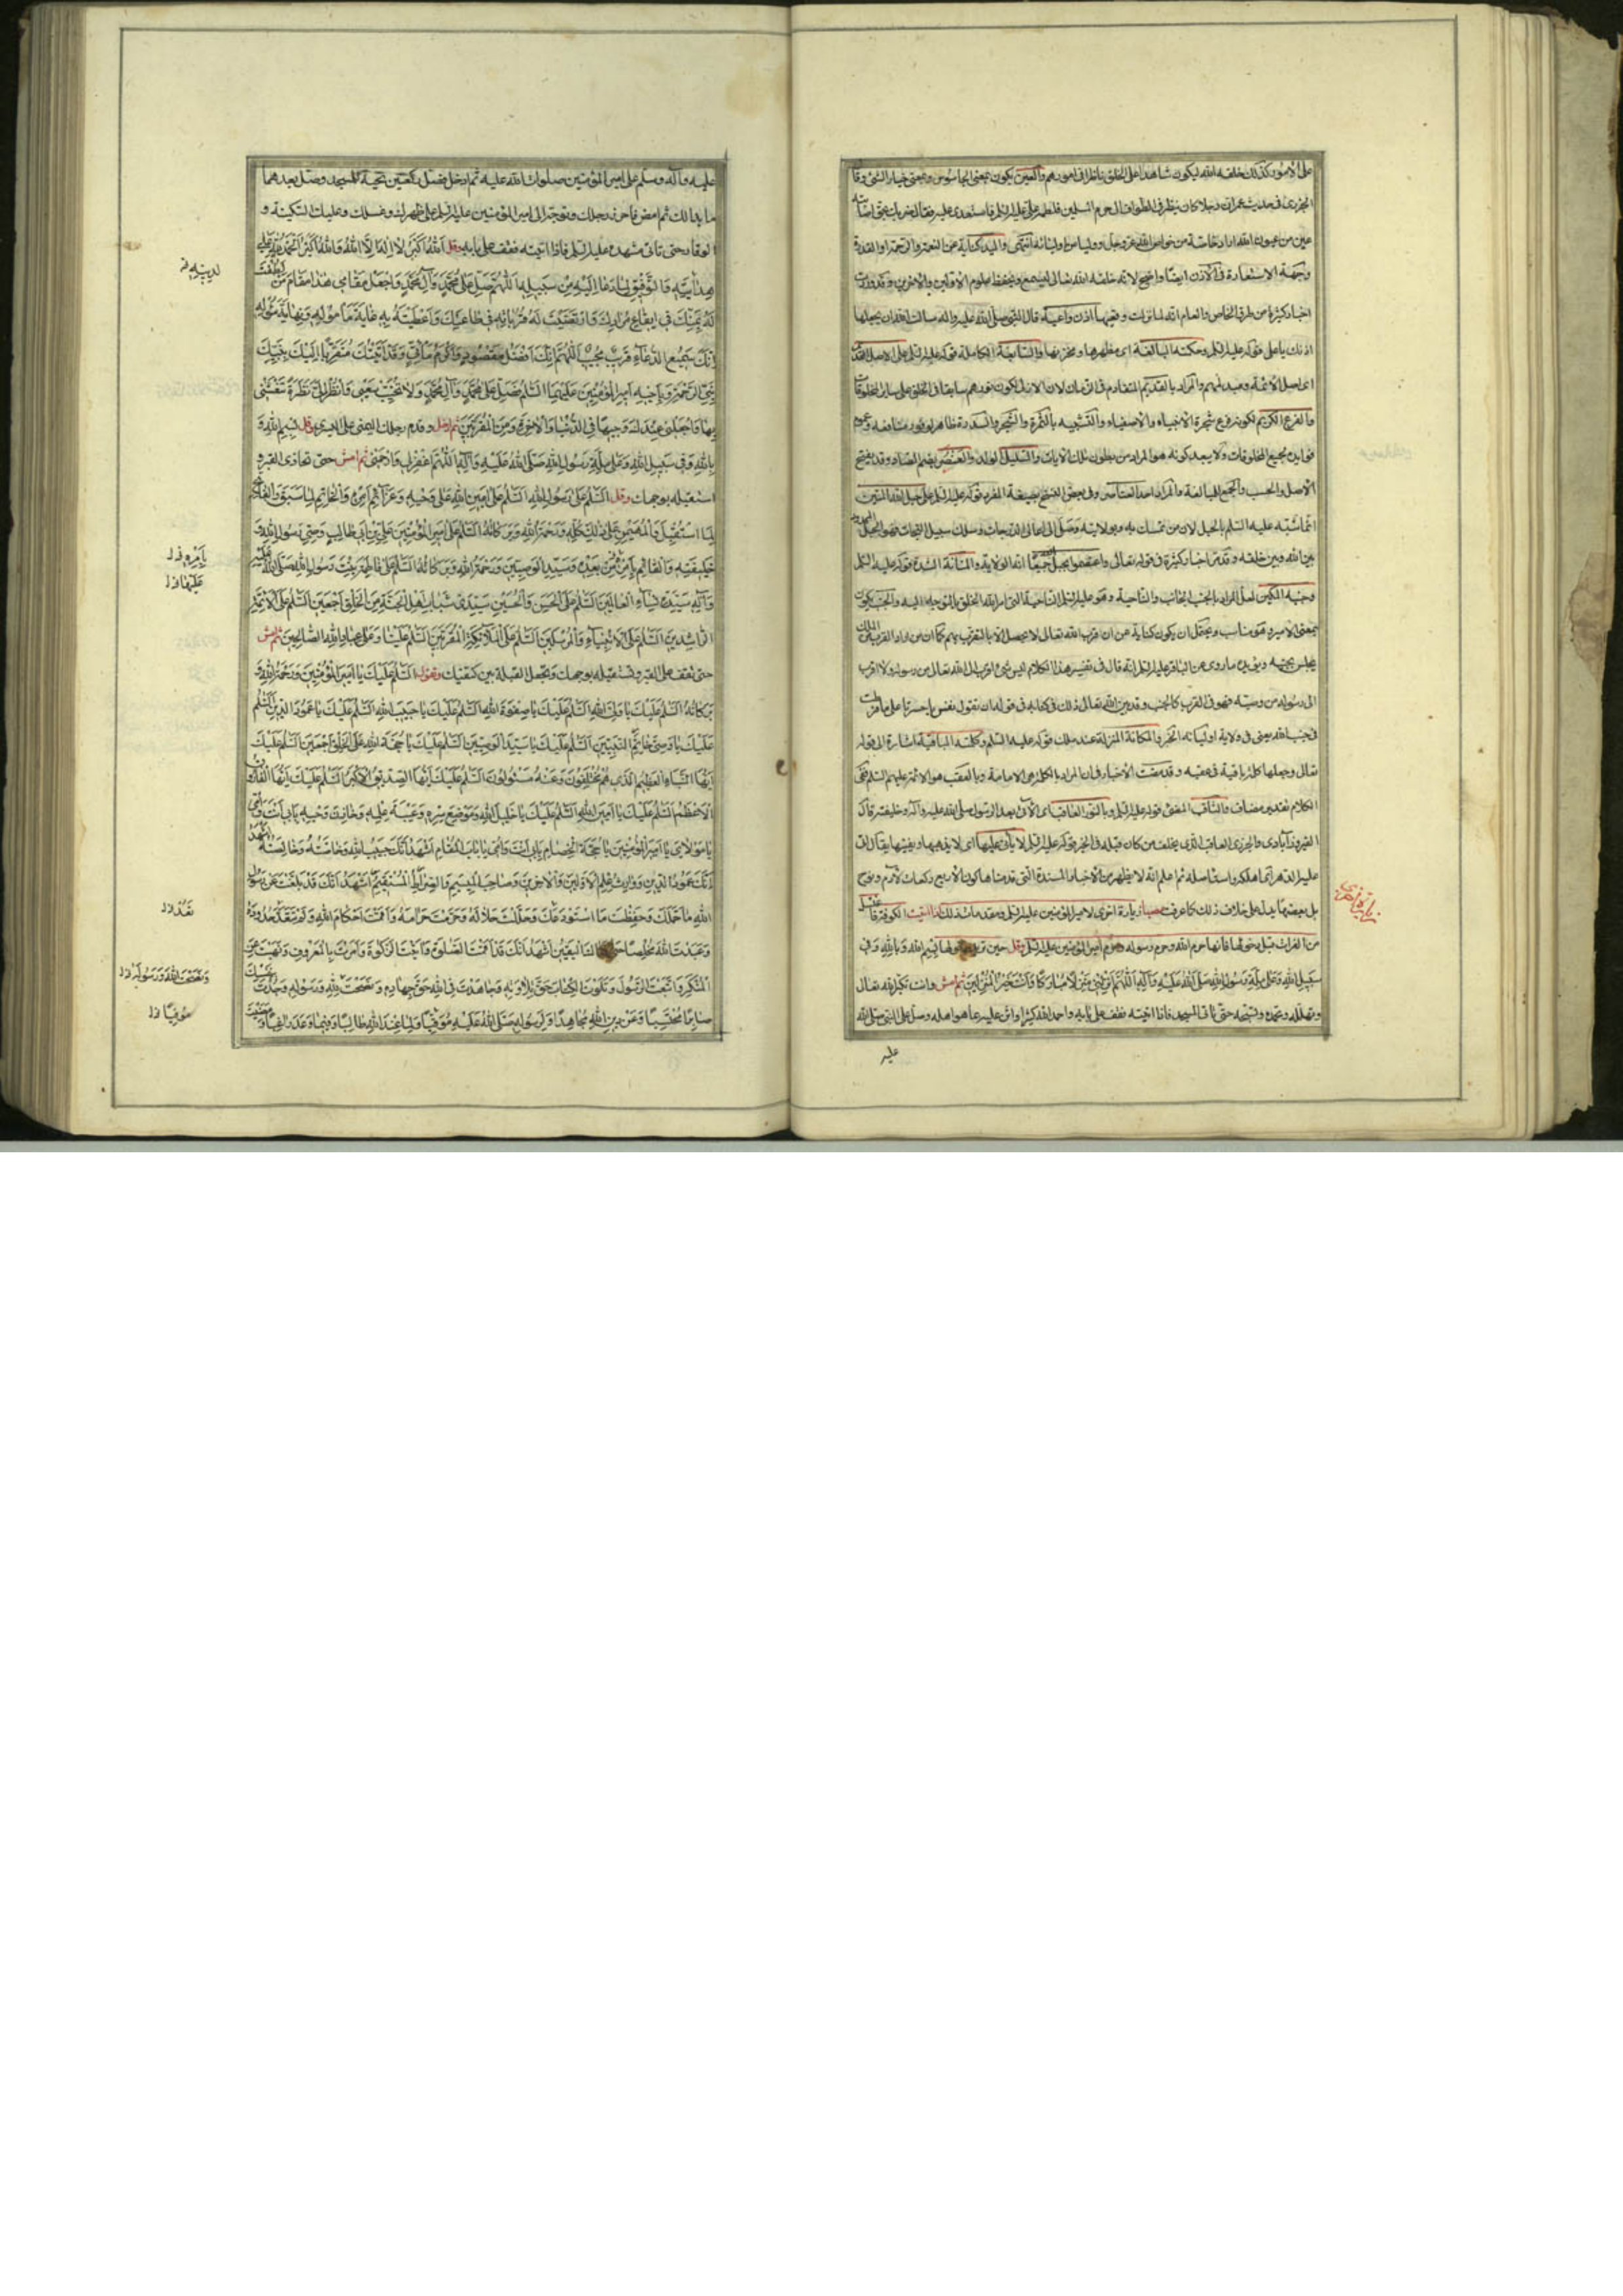 على الأمور كذلك خلقه الله ليكون شاهدا على الخلق ناظرا في امورهم والعين يكون بمعنى الجاسوس وبمعنى خيار الشئ وقال
الجزري في حديث عمر ان رجلا كان ينظر في الطواف الى حرم المسلمين فلطمه علي عليه السلم فاستعدى عليه فقال ضربك بحق اصابته
عين من عيون الله اراد خاصة من خواص الله عز وجل ووليا من اوليائه انتهى واليد كناية عن النعمة والرحمة او القدرة
وجهة الاستعارة في الأذن ايضا واضح لانه خلقه الله تعالى ليسمع ويحفظ علوم الأولين والآخرين وقد وردت
اخبار كثيرة من طرق الخاص والعام انه لما نزلت وتعيها اذن واعية قال النبي صلى الله عليه واله سالت الله ان يجعلها
اذنك يا علي قوله عليه السلم وحكمته البالغة اى مظهرها ومخزنها والسابغة الكاملة قوله عليه السلم على الاصل القديم
اى اصل الأئمة ومبدئهم والمراد بالقديم المتقادم في الزمان لان الازلي لكون نورهم سابقا في الخلق على ساير المخلوقات
والفرع الكريم لكونه فرع شجرة الأنبياء والأصفياء والتشبيه بالثمرة والشجر والسدرة ظاهر لوفور منافعه وعموم
فوايده لجميع المخلوقات ولا يبعد كونه هو المراد من بطون تلك الآيات والسليل الولد والعنصر بضم الصاد وقد يفتح
الأصل والحسب والجمع للمبالغة والمراد احد العناصر وفي بعض النسخ بصيغة المفرد قوله عليه السلم على حبل الله المتين
انما شبه عليه السلم بالحبل لان من تمسك به وبولايته وصل الى اعالى الدرجات وسلك سبيل النجاة فهو الحبل الممدود
بين الله وبين خلقه وقد مر اخبار كثيرة في قوله تعالى واعتصموا بحبل الله جميعا انه الولاية والمتانة الشدة قوله عليه السلم
وجنبه المكين لعل المراد بالجنب الجانب والناحية وهو عليه السلم الناحية التى امر الله الخلق بالتوجه اليه والجنب يكون
بمعنى الأمير وهو مناسب ويحتمل ان يكون كناية عن ان قرب الله تعالى لا يحصل الا بالتقرب بهم كما ان من اراد القرب من الملك
يجلس بجنبه ويؤيده ما روى عن الباقر عليه السلم انه قال في تفسير هذا الكلام ليس شئ اقرب الى الله تعالى من رسوله ولا اقرب
الى رسوله من وصيه فهو في القرب كالجنب وقد بين الله تعالى ذلك في كتابه في قوله ان تقول نفس يا حسرتا على ما فرطت
في جنب الله يعنى في ولاية اوليائه الخبر والمكانة المنزلة عند ملك قوله عليه السلم وكلمته الباقية اشارة الى قوله
تعالى وجعلها كلمة باقية في عقبه وقد مضت الأخبار في ان المراد بالكلمة هى الامامة وبالعقب هو الأئمة عليهم السلم ففى
الكلام تقدير مضاف والثاقب المضئ قوله عليه السلم وبالنور العاقب اى الآتى بعد الرسول صلى الله عليه وآله وخليفته قال
الفيروزآبادى والجزرى العاقب الذى يخلف من كان قبله في الخير قوله عليه السلم لا يأتى عليها اى لا يذهبها ويفنيها يقال اتى
عليه الدهر اى اهلكه واستاصله ثم اعلم انه لا يظهر من الأخبار المسندة التى قدمناها كون الأربع ركعات لآدم ونوح
بل بعضها يدل على خلاف ذلك كما عرفت زيارة اخرى لامير المؤمنين عليه السلم فاذا اتيت الكوفة فاغتسل
من الفرات قبل دخولها فانها حرم الله وحرم رسوله وحرم امير المؤمنين عليه السلم وقل حين تريد دخولها بسم الله وبالله وفي
سبيل الله وعلى ملة رسول الله صلى الله عليه وآله اللهم انزلنى منزلا مباركا وانت خير المنزلين ثم امش وانت تكبر الله تعالى
وتهلله وتحمده وتسبحه حتى تأتى المسجد فاذا اتيته فقف على بابه واحمد الله كثيرا واثن عليه بما هو اهله وصل على النبى صلى الله
عليه
زيارة اخرى
عليه وآله وسلم على امير المؤمنين صلوات الله عليه ثم ادخل فصل ركعتين تحية المسجد وصل بعدهما
ما بدا لك ثم امض فاحرز رحلك وتوجه الى امير المؤمنين عليه السلم على طهرك وغسلك وعليك السكينة و
الوقار حتى تاتى مشهده عليه السلم فاذا اتيته فقف على بابه وقل الله أكبر لا إله إلا الله والله أكبر الحمد لله على
هدايته والتوفيق لما دعا إليه من سبيله اللهم صل على محمد وآل محمد واجعل مقامي هذا مقام من لطفت
له بمنك في إيقاع مرادك وارتضيت له قرباته في طاعتك وأعطيته به غاية مأموله ونهاية سؤله
إنك سميع الدعاء قريب مجيب اللهم إنك أفضل مقصود وأكرم مأتي وقد أتيتك متقربا إليك بنبيك
نبي الرحمة وبأخيه أمير المؤمنين عليهما السلم فصل على محمد وآل محمد ولا تخيب سعيي وانظر إلي نظرة تنعشني
بها واجعلني عندك وجيها في الدنيا والآخرة ومن المقربين ثم ادخل وقدم رجلك اليمنى على اليسرى وقل بسم الله و
بالله وفي سبيل الله وعلى ملة رسول الله صلى الله عليه وآله اللهم اغفر لي وارحمني ثم امش حتى تحاذى القبر و
استقبله بوجهك وقل السلم على رسول الله السلم على أمين الله على وحيه وعزائم أمره والخاتم لما سبق والفاتح
لما استقبل والمهيمن على ذلك كله ورحمة الله وبركاته السلم على أمير المؤمنين علي بن أبي طالب وصي رسول الله و
خليفته والقائم بأمره من بعده وسيد الوصيين ورحمة الله وبركاته السلم على فاطمة بنت رسول الله صلى الله عليه
وآله سيدة نساء العالمين السلم على الحسن والحسين سيدي شباب أهل الجنة من الخلق أجمعين السلم على الأئمة
الراشدين السلم على الأنبياء والمرسلين السلم على الملائكة المقربين السلم علينا وعلى عباد الله الصالحين ثم امش
حتى تقف على القبر وتستقبله بوجهك وتجعل القبلة بين كتفيك وتقول السلم عليك يا أمير المؤمنين ورحمة الله و
بركاته السلم عليك يا ولي الله السلم عليك يا صفوة الله السلم عليك يا حبيب الله السلم عليك يا عمود الدين السلم
عليك يا وصي خاتم النبيين السلم عليك يا سيد الوصيين السلم عليك يا حجة الله على الخلق أجمعين السلم عليك
أيها النباء العظيم الذي هم فيه مختلفون وعنه مسئولون السلم عليك أيها الصديق الأكبر السلم عليك أيها الفاروق
الأعظم السلم عليك يا أمين الله السلم عليك يا خليل الله وموضع سره وعيبة علمه وخازن وحيه بأبي أنت وأمي
يا مولاي يا أمير المؤمنين يا حجة الخصام بأبي أنت وأمي يا باب المقام أشهد أنك حبيب الله وخاصته وخالصته أشهد
أنك عمود الدين ووارث علم الأولين والآخرين وصاحب الميسم والصراط المستقيم أشهد أنك قد بلغت عن رسول
الله ما حملك وحفظت ما استودعك وحللت حلاله وحرمت حرامه وأقمت أحكام الله ولم تتعد حدوده
وعبدت الله مخلصا حتى أتاك اليقين أشهد أنك قد أقمت الصلوة وآتيت الزكوة وأمرت بالمعروف ونهيت عن
المنكر واتبعت الرسول وتلوت الكتاب حق تلاوته وجاهدت في الله حق جهاده ونصحت لله ورسوله وجدت بنفسك
صابرا محتسبا وعن دين الله مجاهدا ولرسوله صلى الله عليه موقيا ولما عند الله طالبا وفيما وعد راغبا ومضيت
لدينه
بأمره خ ل
عليهما خ ل
تعد خ ل
ونصحت لله ورسوله خ ل
موفيا خ ل